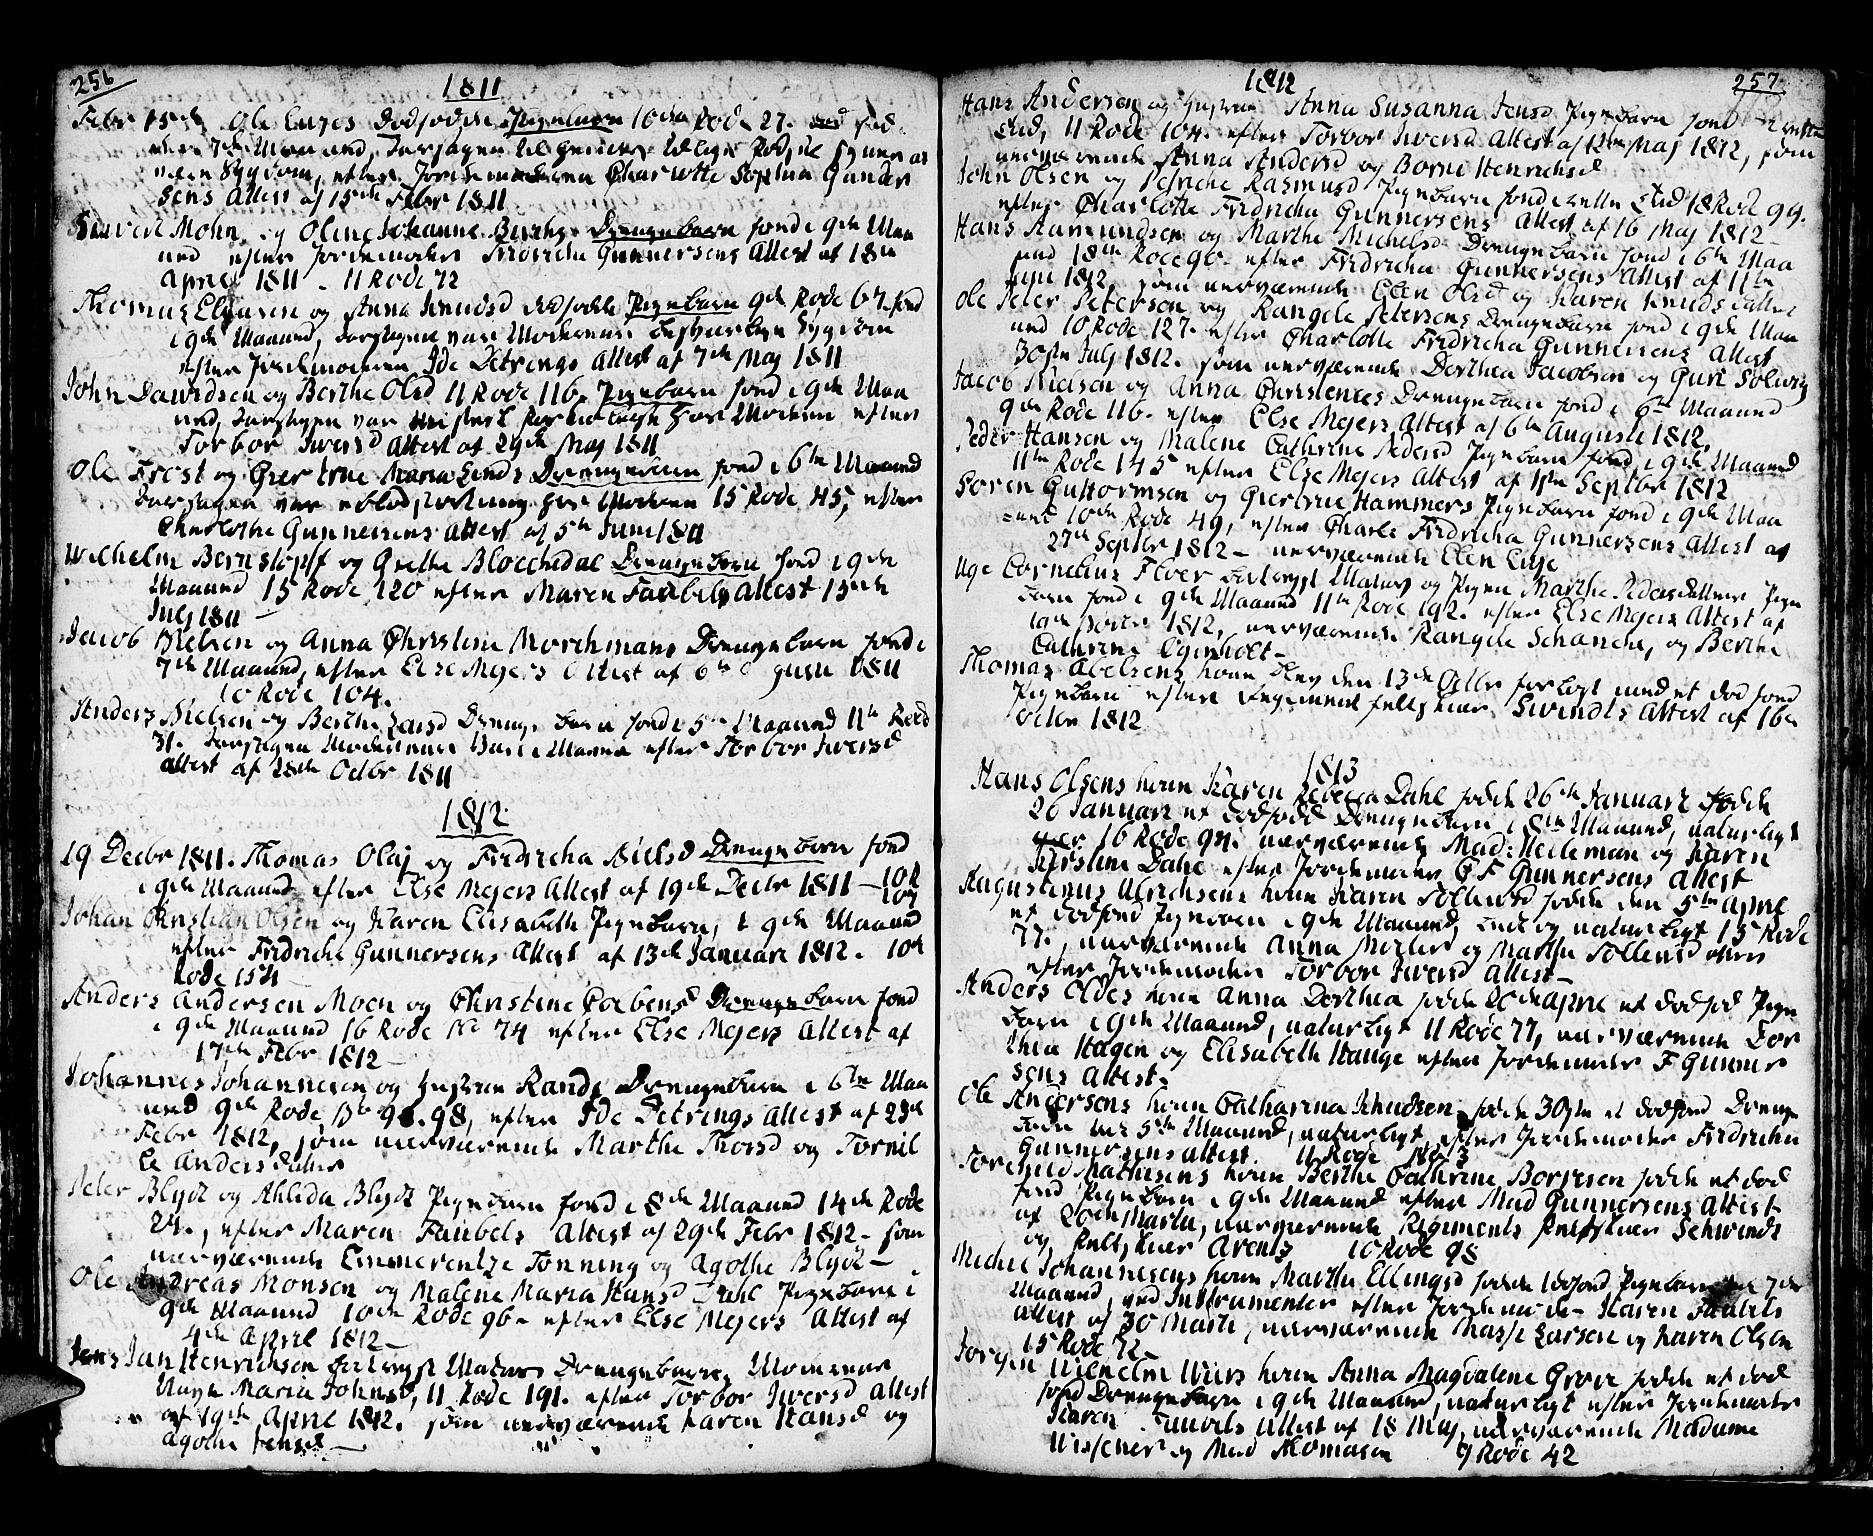 256
1811
Febr 15de Ole Enges Dødfødde Pigebarn 16de Rode 27.
7de Maaned, Aarsagen til
Sygdom, efter Jordemoderen Charlotte Sophia Gunder
sens Attest af 15de Febr 1811
Siwert Mohn og Oline Johanne Drengebarn fønd i 9de Maa
ned efter Jordemoder Fridricha Gunnersens Attest af 18de
April 1811 - 11 Rode 72
Thomas Elgusen og Anna Knudsd dødfødde Pigebarn 9de Rode 67 fønd
i 9de Maaned, Aarsagen var Moderens Sygdom
efter Jordemoderen Ide Detrings Attest af 7de Maj 1811
John Dawidsen og Berthe Olsd 11 Rode 116. Pigebarn fønd i 9de Maa
ned, Aarsagen var hos Moderen efter
Torbor Iwersd Attest af 29de Maj 1811
Ole Frost og Giertrue Maria Lunds Drengebarn fønd i 6te Maaned
Aarsagen var hos Moderen 15 Rode 45, efter
Charlothe Gunnersens Attest af 5te Juni 1811
Wilhelm Bernstopff og Grethe Blocchedal Drengebarn fønd i 9de
Maaned 15 Rode 120 efter Maren Faubels Attest 15de
Julj 1811
Jacob Nielsen og Anna Christine Morchmans Drengebarn fønd i
7de Maaned, efter Else Mejers Attest af 6te 1811
10 Rode 104.
Anders Nielsen og Berthe Larsd Drenge barn fønd i 5te Maaned 11te Rode
31. Aarsagen efter Torbor Iwersd
attest af 28de Octbr 1811
1812
19 Decbr 1811. Thomas Olaj og Fridricha Nielsd Drengebarn fønd
i 9de Maaned efter Else Mejers Attest af 19de Decbr 1811 - 10R
107
Johan Christian Olsen og Karen Elisabeth Pigebarn, i 9de Maaned
efter Fridriche Gunnersens Attest af 13de Januari 1812. 10de
Rode 154
Anders Andersen Moen og Christine Drengebarn fønd
i 9de Maaned 16 Rode No 74 efter Else Mejers Attest af
17de Febr 1812 -
Johannes Johannesen og Hustrue Randi Drengebarn i 6te Maa
ned 9de Rode No 98, efter Ide Detrings Attest af 23de
Febr 1812, som nærværende Marthe Thorsd og Tornil
le Anders datter
Peter Blydt og Ahlida Blydt Pigebarn fønd i 8de Maaned 14de Rode
24., efter Maren Faubels Attest af 29de Febr 1812 - som
nærværende Emmerentze Tønning og Agothe Blydt -
Ole Andreas Monsen og Malene Maria Hansd Dahl Pigebarn i
9de Maaned 10de Rode 96 - efter Else Mejers Attest af
4de April 1812 -
Jens Jan Henrichsen Matros Drengebarn, Moderens
Navn Maria Johnsd, 11 Rode 191. efter Torbor Iwersd Attest
af 19de April 1812. som nærværende Karen Hansd og
Agothe Jensd -
1812
257
Hans Andersen og Hustrue Anna Susanna Jensd Pigebarn fønd i rette
Tid, 11 Rode 104. efter Torbor Iwersd Attest af 12te Maj 1812, som
nærværende Anna Andersd og Borni Henrichsd
John Olsen og Petriche Rasmusd Pigebarn fønd i rette Tid 18 Rode 99.
efter Charlotte Fridricha Gunnersens Attest af 16 Maj 1812 -
Hans Aamundsen og Marthe Michelsd Drengebarn fønd i 6te Maa
ned 18de Rode 90 - efter Fridricha Gunnersens Attest af 11te
Juni 1812 som nærværende Elen Olsd og Karen Knuds datter
Ole Peter Petersen og Rangele Petersens Drengebarn fønd i 9de Maa
ned 10 Rode 127. efter Charlotte Fridricha Gunnersens Attest
30ste Julj 1812. som nærværende Dorthea Jacobsen og Guri Solwig
Jacob Nielsen og Anna Christentes Drengebarn fønd i 6te Maaned
9de Rode 116. efter Else Mejers Attest af 6te Augusti 1812,
Peder Hansen og Malene Cathrine Pedersd Pigebarn fønd i 9de Maaned
11te Rode 145 efter Else Mejers Attest af 11te Septbr 1812
Soren Guttormsen og Giertrue Hammers Pigebarn fønd i 9de Maa
ned 10de Rode 49, efter Charle Fridricha Gunnersens Attest af
27de Septbr 1812 - nærværende Elen Lysse
Uge Cornelius Flyer Matros og Pigen Marthe Pedersdatters Pige
barn fønd i 9de Maaned 11te Rode 192. efter Else Mejers Attest af
1812, nærværende Rangele Schanche, og Berthe
Cathrine Egenholt -
Thomas Abelsens kone blev den 13de Octbr forløst med et død fønd
Pigebarn efter Regiments feltskier Swindts Attest af 16de
Octbr 1812
1813
Hans Olsens kone Karen Rebecca Dahl fødde 26de Januarii fødde
26 Januarii et dødfødd Drengebarn i 8de Maaned, naturligt
16 Rode 94. nærværende Mad: Heileman og Karen
Kirstine Dahl efter Jordemoder C F Gunnersens Attest
Augustinus Ulrichsens kone Karen Tollewsd fødde den 5te April
et dødfønd Pigebarn i 9de Maaned, naturligt 15 Rode
77., nærværende Anna Merler og Marthe Tollewsd efter
efter Jordemoder Torbor Iwersd Attest -
Anders Oldes kone Anna Dorthea fødde 20de April et dødfød Pige
barn i 9de Maaned, naturligt 11 Rode 77, nærværende Dor
thea Hagen og Elisabeth Hauge efter Jordemoder F Gunner
sens Attest.
Ole Andersens kone Catharina Knudsen fødde 30ste et dødfønd Drenge
barn 5te Maaned, naturligt, efter Jordemoder Fridricha
Gunnersens attest. 11 Rode No 3
Torchild Mathisens kone Berthe Cathrine Borgesen fødde et død
fønd Pigebarn i 9de Maaned efter Mad Gunnersens Attest
af 20de Martii, nærværende Regiments feltskier Schwindt
og feltskier Arentz 10 Rode 98
Michel Johannesens kone Marthe Ellingsd fødde dødfønd Pigebarn 7de
Maaned, ved Instrumenter efter Jordemoder Karen Faubels
Attest af 30 Marti, nærværende Larsen og Karen Olsen
15 Rode 72 -
Jorgen Wilhelm Wiers kone Anna Magdalene Greve fødde et død
fønd Drengebarn i 9de Maaned, naturligt efter Jordemoder
Karen Faubels Attest af 18 Maj, nærværende Madame
og Mad Thomasen 9 Rode 42